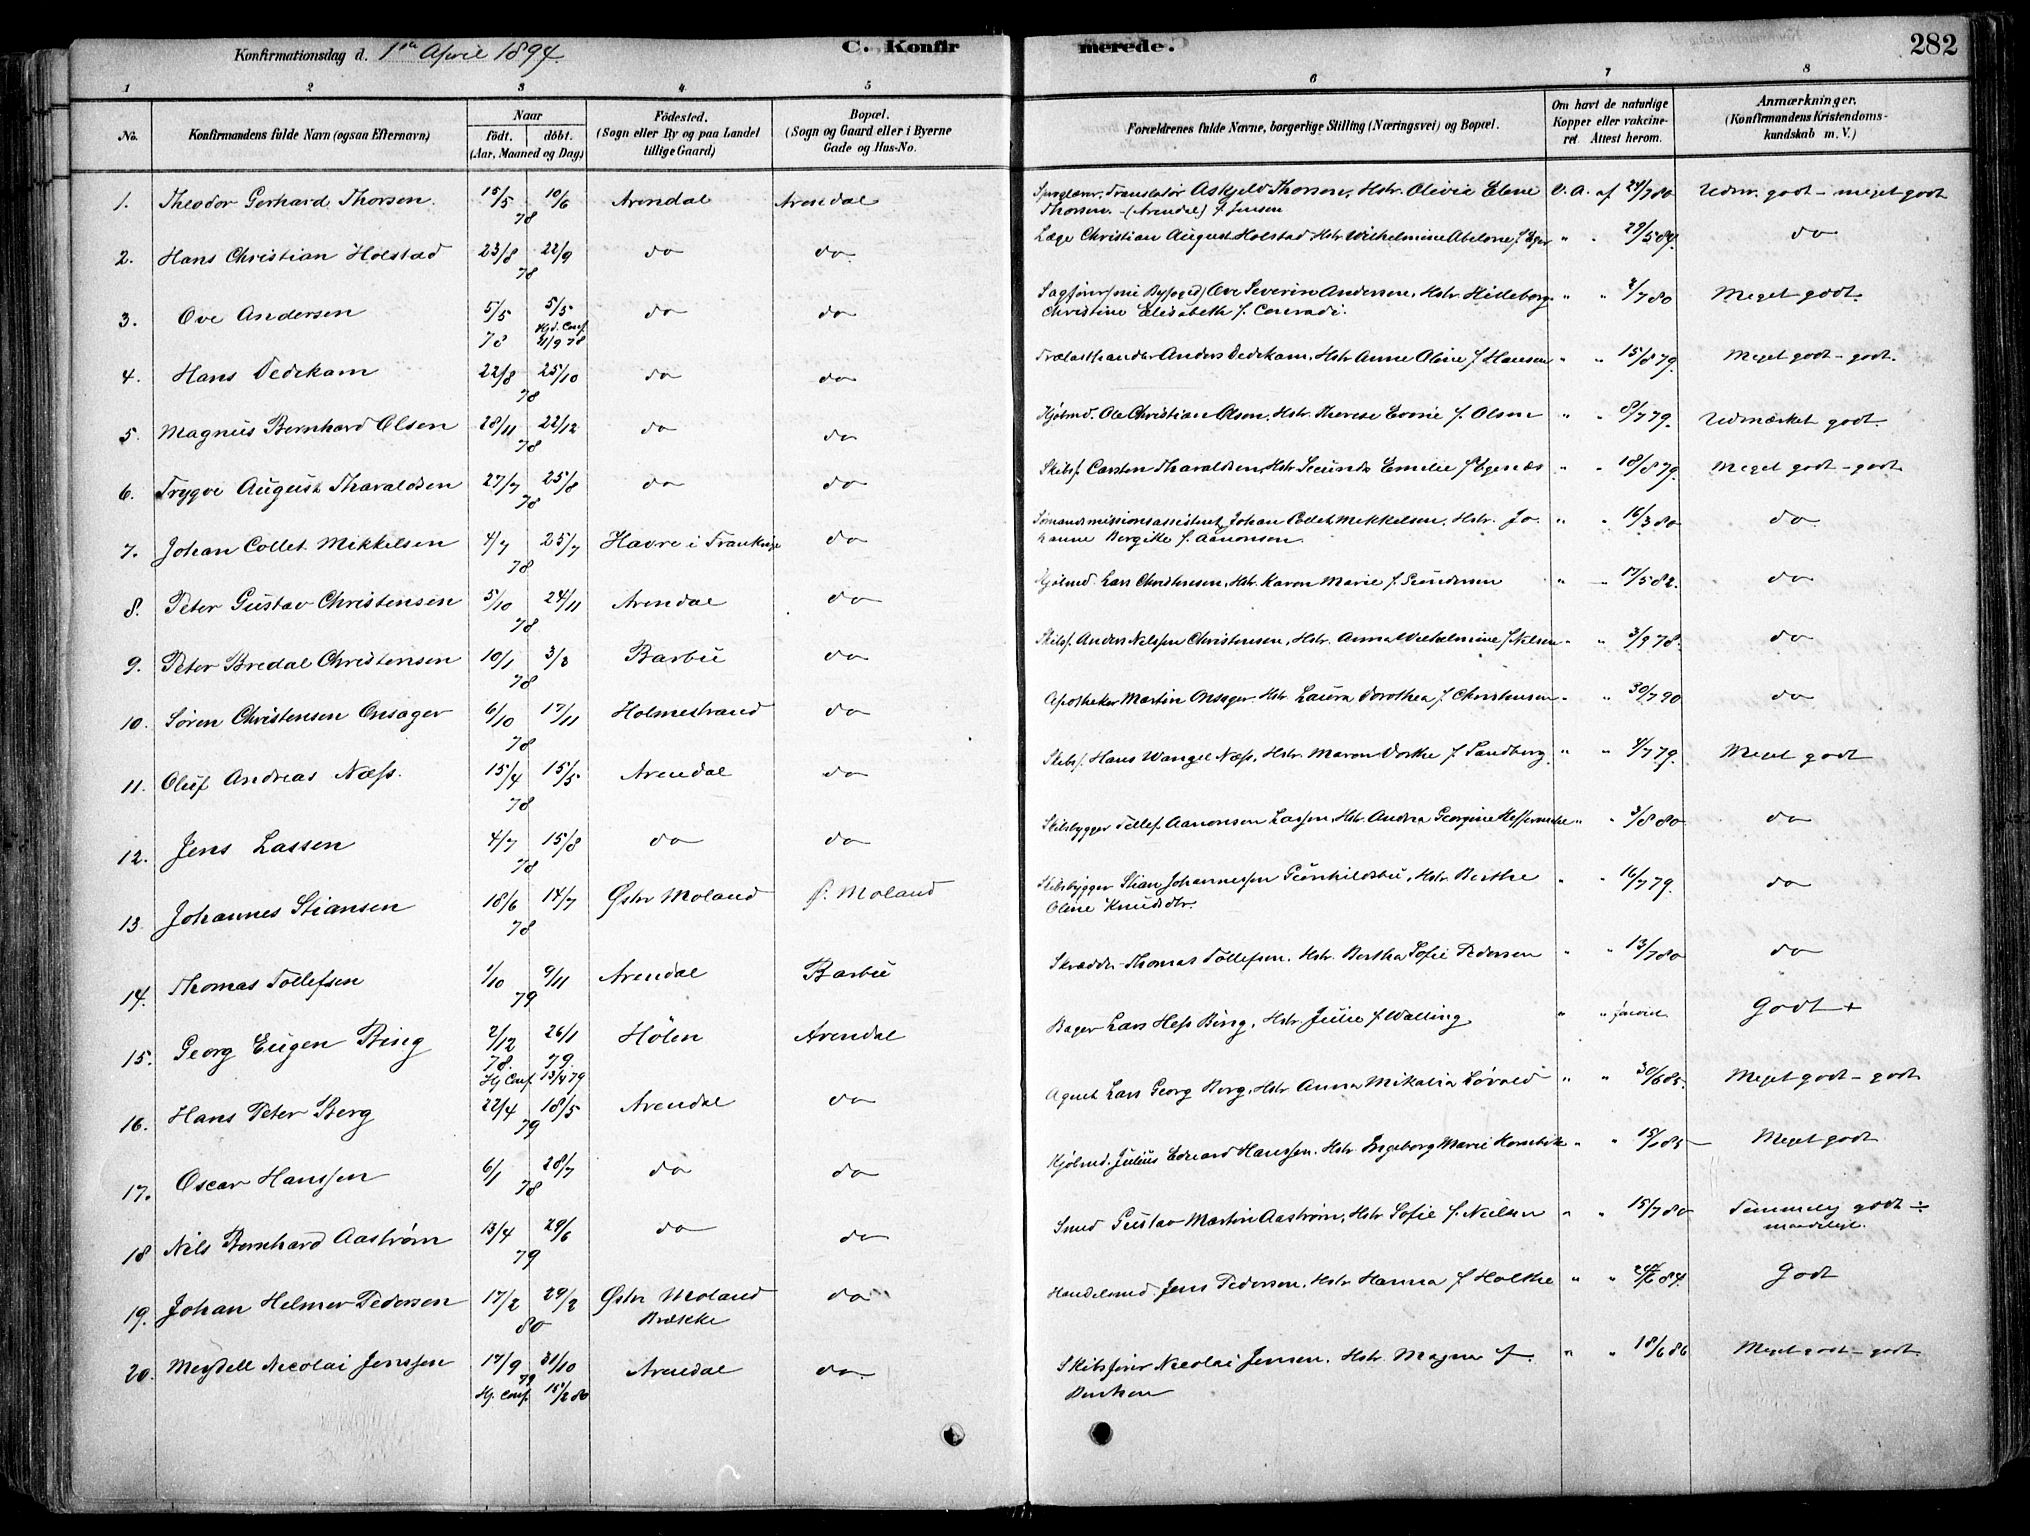 Konfirmationsdag d. 1ste April 1894.
C. Konfirmerede.
282
1 2 3 4 5 6 7 8
No.
Konfirmandens fulde Navn (ogsaa Efternavn)
Naar
født. døbt.
(Aar, Maaned og Dag)
Fødested.
(Sogn eller By og paa Landet
tillige Gaard)
Bopæl.
(Sogn og Gaard eller i Byerne
Gade og Hus-No.
Forældrenes fulde Navne, borgerlige Stilling (Næringsvei) og Bopæl.
Om havt de naturlige
Kopper eller vakcine-
ret. Attest herom.
Anmærkninger.
(Konfirmandens Kristendoms-
kundskab m. V.)
1. Theodor Gerhard Thorsen. 15/5 10/6 Arendal Arendal Translatør Askjeld Thorsen, Hstr. Olivie Elene V. A. af 24/7 80 Udm. godt - meget godt
78 Thorsen. - (Arendal) f. Jensen
2. Hans Christian Holstad 23/8 22/9 do do Læge Christian August Holstad Hstr Wilhelmine Abelone f. Eger " " 29/5 84. do
78
3. Ove Andersen 5/5 5/5 do do Sagfører Ove Severin Andersen, Hstr Hildeborg " " 2/7 80 Meget godt.
78 Hjd. Conf. 21/9 78 Christine Elisabeth f. Conradi.
4. Hans Dedekam 22/8 25/10 do do Trælasthandler Anders Dedekam, Hstr Anne Oline f. Hansen " " 15/8 79. Meget godt - godt.
78
5. Magnus Bernhard Olsen 28/11 22/12 do do Kjølmd. Ole Christian Olsen, Hstr. Therese f. Olsen " " 8/7 79. Udmærket godt.
78
6. Trygve August Tharaldsen 27/7 25/8 do do Skibsf. Carsten Tharaldsen, Hstr Secunda Emilie f. Egenæs " " 18/8 79. Meget godt - godt
78
7. Johan Collet Mikkelsen 4/7 25/7 Havre i Frankrige do Sømandsmissionsassistent Johan Collet Mikkelsen, Hstr. Jo- " " 16/3 80 do
78 hanne Bergitte f. Aanonsen.
8. Peter Gustav Christensen 5/10 24/11 Arendal do Kjølmd. Lars Christensen, Hstr Karen Marie f. Gundersen " " 17/5 82. do
78
9. Peter Bredal Christensen 10/1 3/3 Barbu do Skibsf. Anders Nielssen Christensen, Hstr. Anna Wilhelmine f. Nielsen " " 3/9 78. do
78
10. Søren Christensen Onsager 6/10 17/11 Holmestrand do Apotheker Martin Onsager Hstr Laura Dorothea f. Christensen " " 30/7 90 do
78
11. Oluf Andreas Næss. 15/4 15/5 Arendal do Skibsf. Hans Wangel Næss, Hstr. Maren Dorthe f. Sandberg " " 4/7 79. Meget godt
78
12. Jens Lassen 4/7 15/8 do do Skibsbygger Tellef Aanonsen Lassen, Hstr Andrea Georgine " " 3/8 80 do
78
13. Johannes Stiansen 18/6 14/7 Østr Moland Ø. Moland Skibsbygger Stian Johannessen Gunhildsbu, Hstr. Berthe " " 16/7 79. do
78 Oline Knudsdtr.
14. Thomas Tollefsen 1/10 9/11 Arendal Barbu Skrædder Thomas Tollefsen, Hstr. Bertha Sofie Pedersen " " 13/7 80 do
79
15. Georg Eugen Bing 2/12 26/1 Hølen Arendal Bager Lars Hess Bing, Hstr. Julie f. Walling " " Godt +
78. 79.
Hj Conf. 13/4 79
16. Hans Peter Berg 22/4 18/5 Arendal do Agent Lars Georg Berg, Hstr Anna Mikalia Løvold " " 30/6 85. Meget godt - godt
79
17. Oscar Hanssen 6/1 28/7 do do Kjølmd. Julius Edvard Hanssen, Hstr Engeborg Marie " " Meget godt
78
18 Nils Bernhard Aastrøm 13/4 29/6 do do Smed Gustav Martin Aastrøm, Hstr Sofie f. Nielsen " " 15/7 80 Temmelig godt ÷
79 maadeligt.
19. Johan Helmer Pedersen 17/2 29/2 Østr Moland do Handelsmd Jens Pedersen, Hstr Hanna f. Holthe " " 24/6 84. Godt
80 Brække
20. Meydell Nicolai Jenssen 17/9 31/10 Arendal do Skibsfører Nicolai Jensen, Hstr. Magna f. " " 18/6 86 Meget godt - godt
79 Berntsen
Hj. Conf. 15/2 80